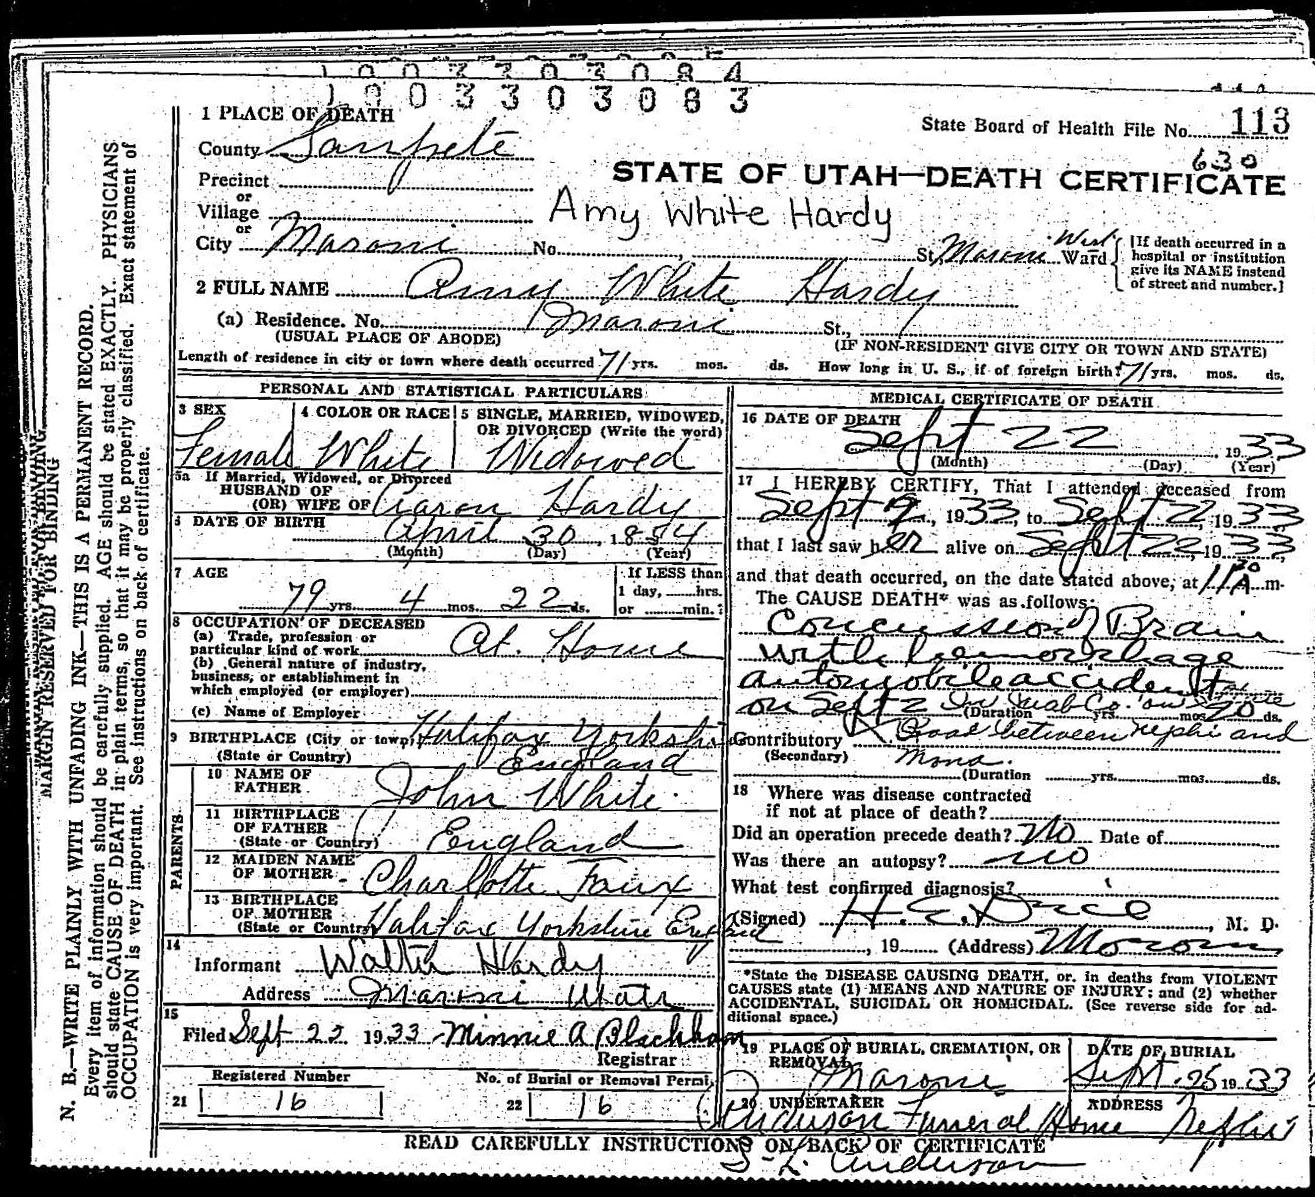 1003303084
1003303083
1 PLACE OF DEATH
State Board of Health File No. 113
County Sanpete
630
STATE OF UTAH—DEATH CERTIFICATE
Precinct
or
Village
Amy White Hardy
or
City Moroni No. St. Moroni West Ward
[If death occurred in a
hospital or institution
give its NAME instead
of street and number.]
2 FULL NAME Amy White Hardy
(a) Residence. No. Moroni St.,
(USUAL PLACE OF ABODE) (IF NON-RESIDENT GIVE CITY OR TOWN AND STATE)
Length of residence in city or town where death occurred 71 yrs. mos. ds. How long in U. S., if of foreign birth? 71 yrs. mos. ds.
PERSONAL AND STATISTICAL PARTICULARS
3 SEX 4 COLOR OR RACE 5 SINGLE, MARRIED, WIDOWED,
OR DIVORCED (Write the word)
Female White Widowed
5a If Married, Widowed, or Divorced
HUSBAND OF
(OR) WIFE OF Aaron Hardy
6 DATE OF BIRTH April 30, 1854
(Month) (Day) (Year)
7 AGE
79 yrs. 4 mos. 22 ds.
If LESS than
1 day, hrs.
or min.?
8 OCCUPATION OF DECEASED
(a) Trade, profession or
particular kind of work At Home
(b) General nature of industry,
business, or establishment in
which employed (or employer)
(c) Name of Employer
9 BIRTHPLACE (City or town) Halifax Yorkshire
(State or Country) England
PARENTS
10 NAME OF
FATHER John White
11 BIRTHPLACE
OF FATHER
(State or Country) England
12 MAIDEN NAME
OF MOTHER Charlotte Faux
13 BIRTHPLACE
OF MOTHER
(State or Country) Halifax Yorkshire England
14
Informant Walter Hardy
Address Moroni Utah
15
Filed Sept 22 1933 Minnie A Blackham
Registrar
Registered Number No. of Burial or Removal Permit
21 16 22 16
MEDICAL CERTIFICATE OF DEATH
16 DATE OF DEATH
Sept 22, 1933
(Month) (Day) (Year)
17 I HEREBY CERTIFY, That I attended deceased from
Sept 2, 1933, to Sept 22, 1933
that I last saw her alive on Sept 22, 1933,
and that death occurred, on the date stated above, at 11 30 A. m.
The CAUSE DEATH* was as follows:
Concussion of Brain
with hemorrhage
automobile accident
on Sept 2 In Juab Co. on
(Duration yrs. mos. 20 ds.
Contributory Road between Nephi and
(Secondary) Mona.
(Duration yrs. mos. ds.
18 Where was disease contracted
if not at place of death?
Did an operation precede death? No Date of
Was there an autopsy? no
What test confirmed diagnosis?
(Signed) , M. D.
, 19 (Address) Moroni
*State the DISEASE CAUSING DEATH, or, in deaths from VIOLENT
CAUSES state (1) MEANS AND NATURE OF INJURY; and (2) whether
ACCIDENTAL, SUICIDAL OR HOMICIDAL. (See reverse side for ad-
ditional space.)
19 PLACE OF BURIAL, CREMATION, OR
REMOVAL
Moroni
DATE OF BURIAL
Sept. 25 1933
20 UNDERTAKER ADDRESS
Anderson Funeral Home Nephi
READ CAREFULLY INSTRUCTIONS ON BACK OF CERTIFICATE
S. L. Anderson
MARGIN RESERVED FOR BINDING
N. B.—WRITE PLAINLY WITH UNFADING INK—THIS IS A PERMANENT RECORD.
Every item of information should be carefully supplied. AGE should be stated EXACTLY. PHYSICIANS
should state CAUSE OF DEATH in plain terms, so that it may be properly classified. Exact statement of
OCCUPATION is very important. See instructions on back of certificate.